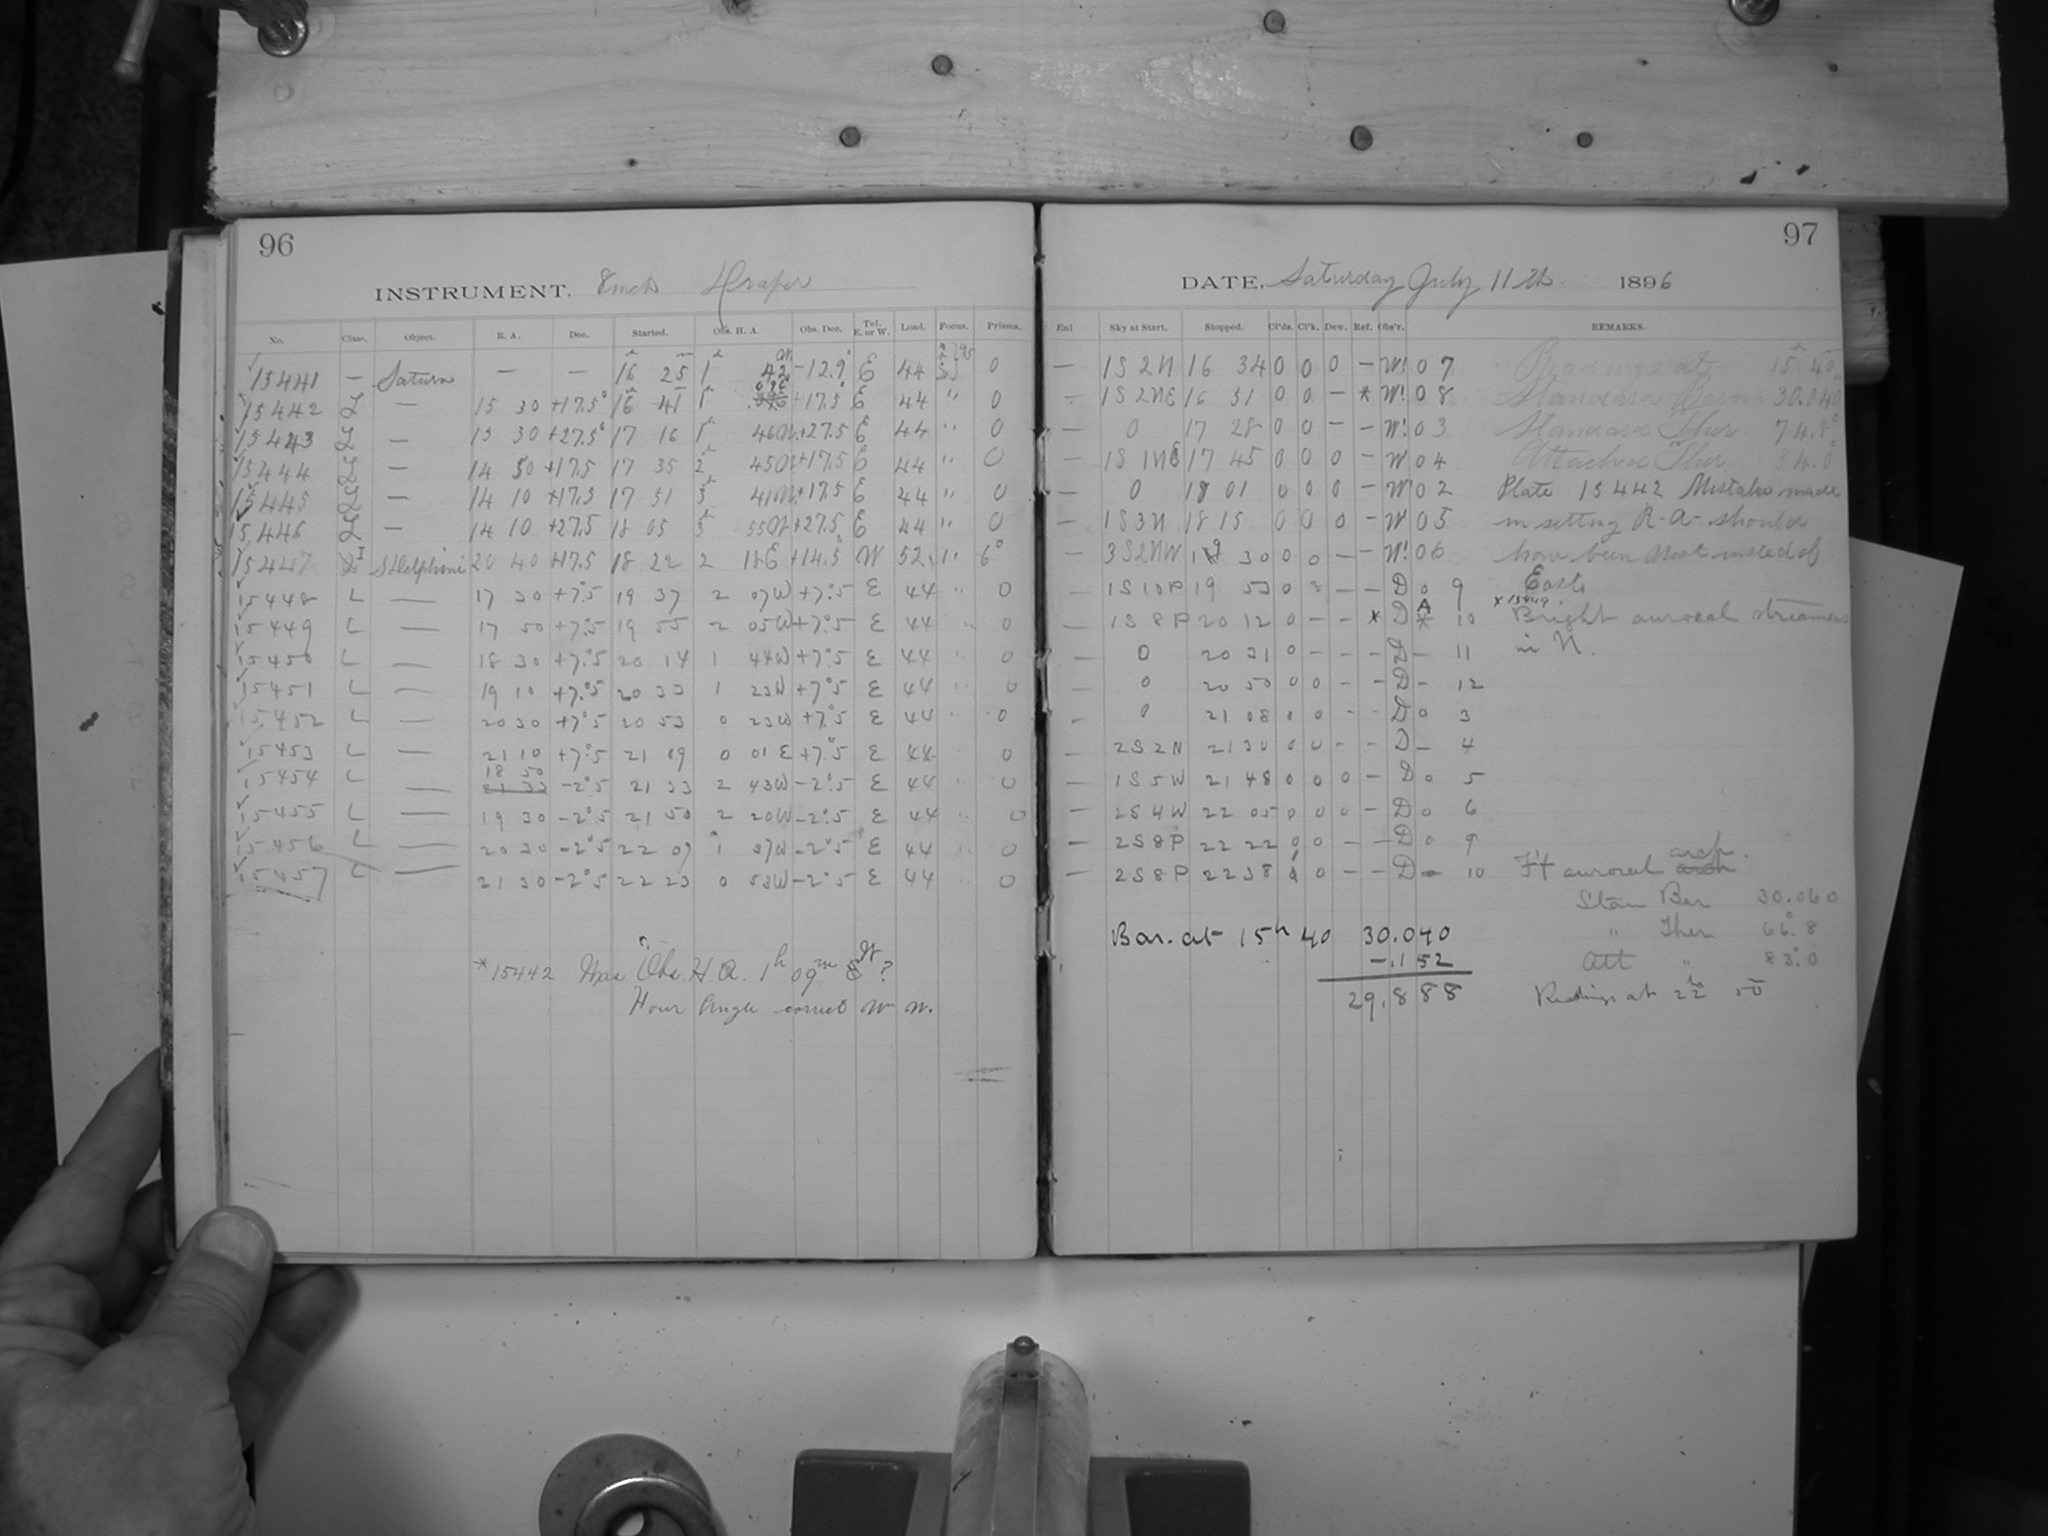 96
INSTRUMENT. 8 inch Draper
No. Class. Object. R. A. Dec. Started. Obs. H. A. Obs. Dec. Tel. E. or W. Load. Focus. Prisms.
15441 — Saturn — — 16h 25m 1h 42 W -12.9° E 44 0
15442 L — 15 30 +17.5° 16 41 1h 09 E +17.5° E 44 " 0
15443 L — 15 30 +27.5° 17 16 1h 46W +27.5 E 44 " 0
15444 L — 14 50 +17.5 17 35 2h 45W +17.5 E 44 " 0
15445 L — 14 10 +17.5 17 51 3h 41W +17.5 E 44 " 0
15446 L — 14 10 +27.5 18 05 3h 55W +27.5 E 44 " 0
15447 I S Delphini 20 40 +17.5 18 22 2 18E +14.5° W 52 " 6°
15448 L — 17 30 +7°.5 19 37 2 07W +7°.5 E 44 " 0
15449 L — 17 50 +7°.5 19 55 2 05W +7°.5 E 44 " 0
15450 L — 18 30 +7°.5 20 14 1 44W +7°.5 E 44 " 0
15451 L — 19 10 +7°.5 20 33 1 23W +7°.5 E 44 " 0
15452 L — 20 30 +7°.5 20 53 0 23W +7°.5 E 44 " 0
15453 L — 21 10 +7°.5 21 19 0 01 E +7°.5 E 44 0
15454 L — 18 50 -2°.5 21 33 2 43W -2°.5 E 44 0
15455 L — 19 30 -2°.5 21 50 2 20W -2°.5 E 44 0
15456 L — 20 30 -2°.5 22 07 1 37W -2°.5 E 44 0
15457 L — 21 30 -2°.5 22 23 0 53W -2°.5 E 44 0
*15442 Was Obs. H. A. 1h 09m E W ?
Hour Angle correct
97
DATE, Saturday July 11th. 1896
Sky at Start. Stopped. Cl'ds. Cl'k. Dew. Ref. Obs'r. REMARKS.
— 1S 2N 16 34 0 0 0 — W! 0 7 Readings at 15h 40m
1S 2NE 16 51 0 0 — * W! 0 8 Standard Barom 30.040
— 0 17 28 0 0 — — W! 0 3 Standard Ther 74.8°
— 1S 1NE 17 45 0 0 0 — W 0 4 Attached Ther 84.0°
— 0 18 01 0 0 0 — W 0 2 Plate 15442 Mistake made
— 1S3N 18 15 0 0 0 — W 0 5 in setting R-A- should
— 3S2NW 19 30 0 0 — — W! 0 6 have been West insted of
— 1S10P 19 53 0 — — D 0 9 East.
— 1S 8P 20 12 0 — — * D A * 10 x 15449 Bright auroral streamers
— 0 20 31 0 — — — D — 11 in N.
— 0 20 50 0 0 — — D — 12
— 0 21 08 0 0 — — D 0 3
— 2S2N 21 30 0 0 — — D — 4
— 1S5W 21 48 0 0 0 — D 0 5
— 2S4W 22 05 0 0 0 — D 0 6
— 2S8P 22 22 0 0 — — D 0 9
— 2S8P 22 38 0 — — D 10 F't auroral arch.
Stan Bar 30.060
" Ther 66.8°
Att " 83.0°
Readings at 22h 50m
Bar. at 15h 40 30.040
-.152
29.888